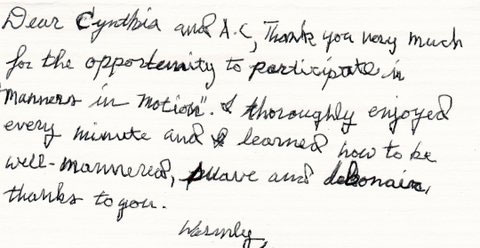 Dear Cynthia and A.C, Thank you very much
for the opportunity to participate in
"Manners in Motion". I thoroughly enjoyed
every minute and I learned how to be
well-mannered, suave and debonair,
thanks to you.
Warmly,